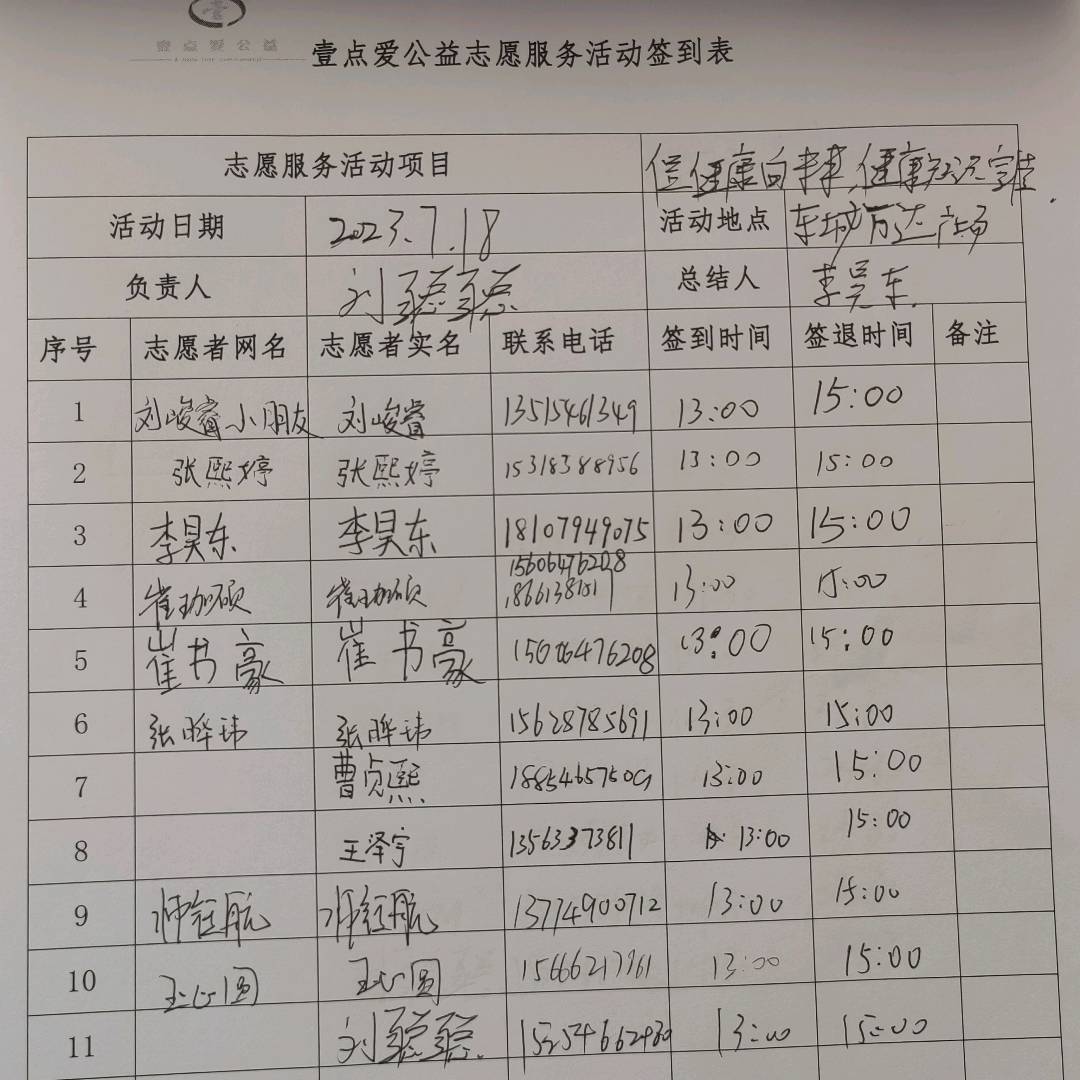 壹点爱公益
壹点爱公益志愿服务活动签到表
志愿服务活动项目 健康向未来,健康知识宣传.
活动日期 2023.7.18 活动地点 东城万达广场
负责人 刘聪聪 总结人 李昊东
序号 志愿者网名 志愿者实名 联系电话 签到时间 签退时间 备注
1 刘峻睿小朋友 刘峻睿 13515461349 13:00 15:00
2 张熙婷 张熙婷 15318388956 13:00 15:00
3 李昊东 李昊东 18107949075 13:00 15:00
4 崔珈硕 崔珈硕 15606476208 13:00 15:00
5 崔书豪 崔书豪 15606476208 13:00 15:00
6 张晔玮 张晔玮 15628785691 13:00 15:00
7 曹贞熙 18854657509 13:00 15:00
8 王泽宇 13563373811 13:00 15:00
9 帅钰航 帅钰航 13774900712 13:00 15:00
10 王心圆 王心圆 15666217961 13:00 15:00
11 刘聪聪 15254662480 13:00 15:00